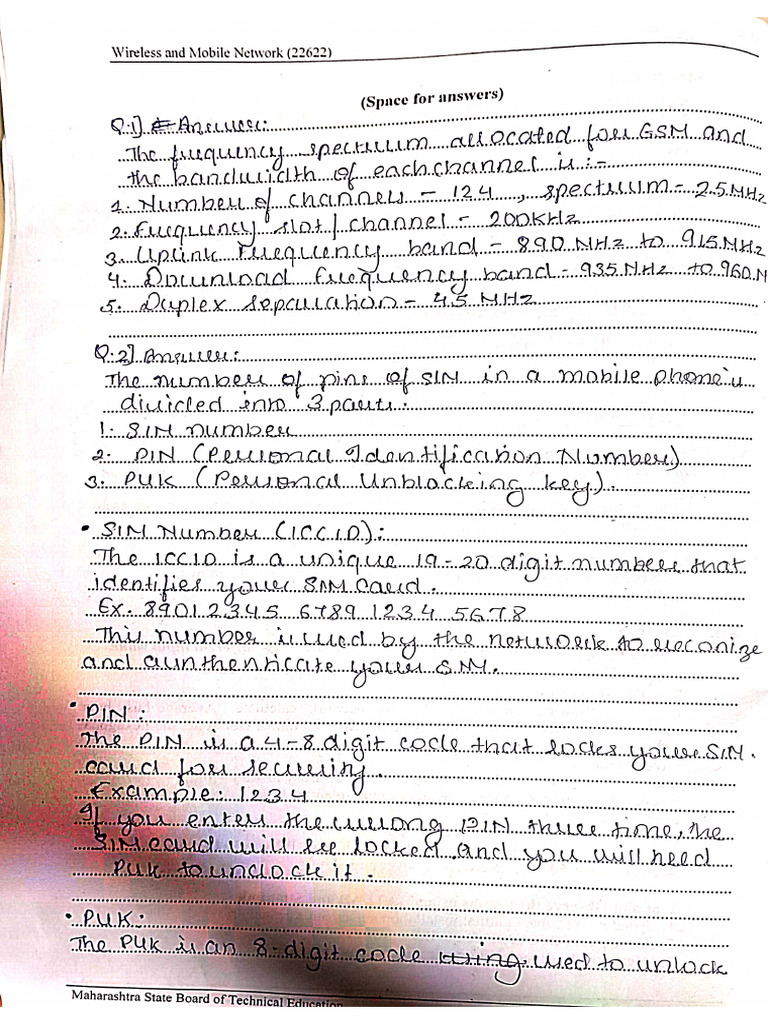 Wireless and Mobile Network (22622)
(Space for answers)
Q.1] Answer:
The frequency spectrum allocated for GSM and
the bandwidth of each channel is :-
1. Number of channels - 124 , spectrum - 25 MHz
2. Frequency slot / channel - 200KHz
3. Uplink frequency band - 890 MHz to 915 MHz
4. Download frequency band - 935 MHz to 960 M
5. Duplex separation - 45 MHz
Q.2] Answer:
The number of pins of SIM in a mobile phone is
divided into 3 parts.
1. SIM number
2. PIN (Personal Identification Number)
3. PUK (Personal Unblocking key).
• SIM Number (ICCID):
The ICCID is a unique 19-20 digit number that
identifies your SIM card.
Ex. 89012345 6789 1234 5678
This number is used by the network to reconize
and aunthenticate your SIM.
• PIN:
The PIN is a 4-8 digit code that locks your SIM.
card for security.
Example: 1234
If you enter the wrong PIN three time, the
SIM card will be locked and you will need
PUK to unclock it.
• PUK:
The PUK is an 8-digit code used to unlock
Maharashtra State Board of Technical Education